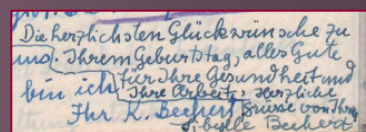 Die herzlichsten Glückwünsche zu
und Ihrem Geburtstag, alles Gute
für Ihre Gesundheit und
bin ich Ihre Arbeit, Herzliche
Ihr K. Bechert Grüsse von Ihrer
Sibylle Bechert